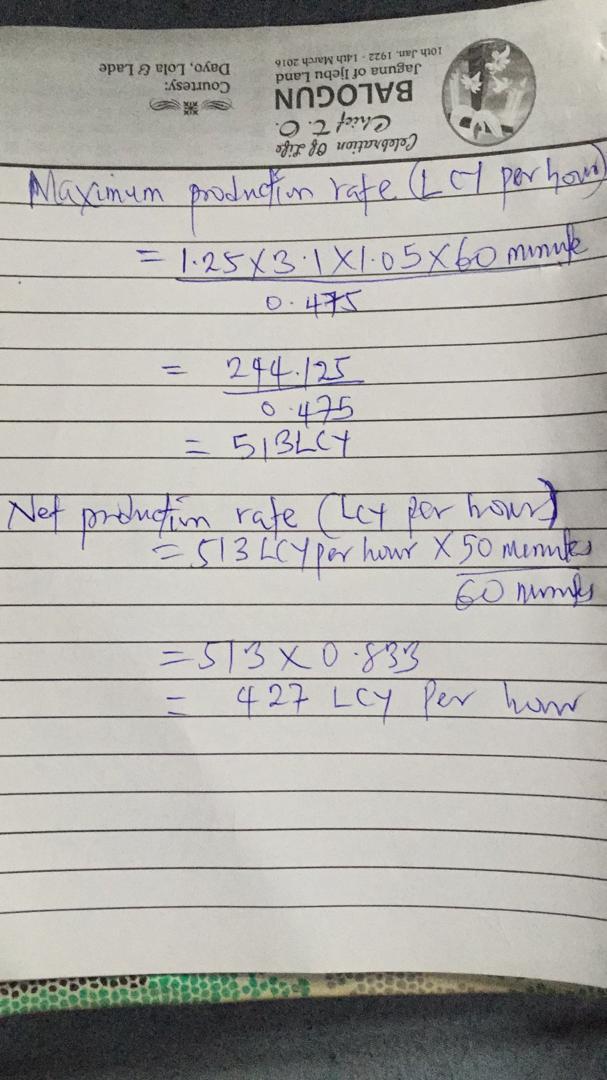 Celebration Of Life
Chief T. O.
BALOGUN
Jaguna of Ijebu Land
10th Jan. 1922 - 14th March 2016
Courtesy:
Dayo, Lola & Lade
Maximum production rate (LCY per hour)
= 1.25 X 3.1 X 1.05 X 60 minute
0.475
= 244.125
0.475
= 513 LCY
Net production rate (LCY per hour)
= 513 LCY per hour X 50 minutes
60 minutes
= 513 X 0.833
= 427 LCY Per hour